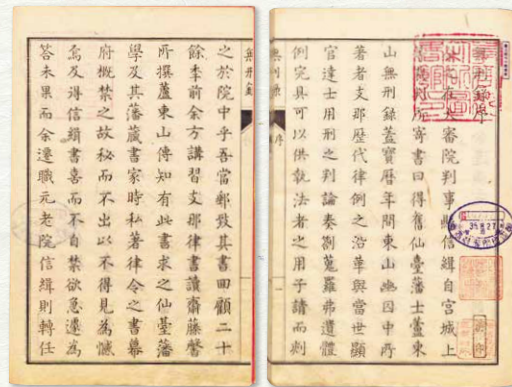 無刑録序
在大審院判事信緝自宮城上
寄書曰得舊仙臺藩士蘆東
山無刑錄蓋寶曆年間東山幽囚中所
著者支那歷代律例之沿革與當世顯
官達士用刑之判論奏劄蒐羅弗遺體
例完具可以供執法者之用子請而刻
無刑錄 序 一
之於院中乎吾當郵致其書回顧二十
餘季前余方講習支那律書讀齋藤馨
所撰蘆東山傳知有此書求之仙臺藩
學及其藩藏書家時私著律令之書幕
府概禁之故秘而不出以不得見為憾
焉及得信緝書喜而不自禁欲急遽為
答未果而余遷職元老院信緝則轉任
無刑錄